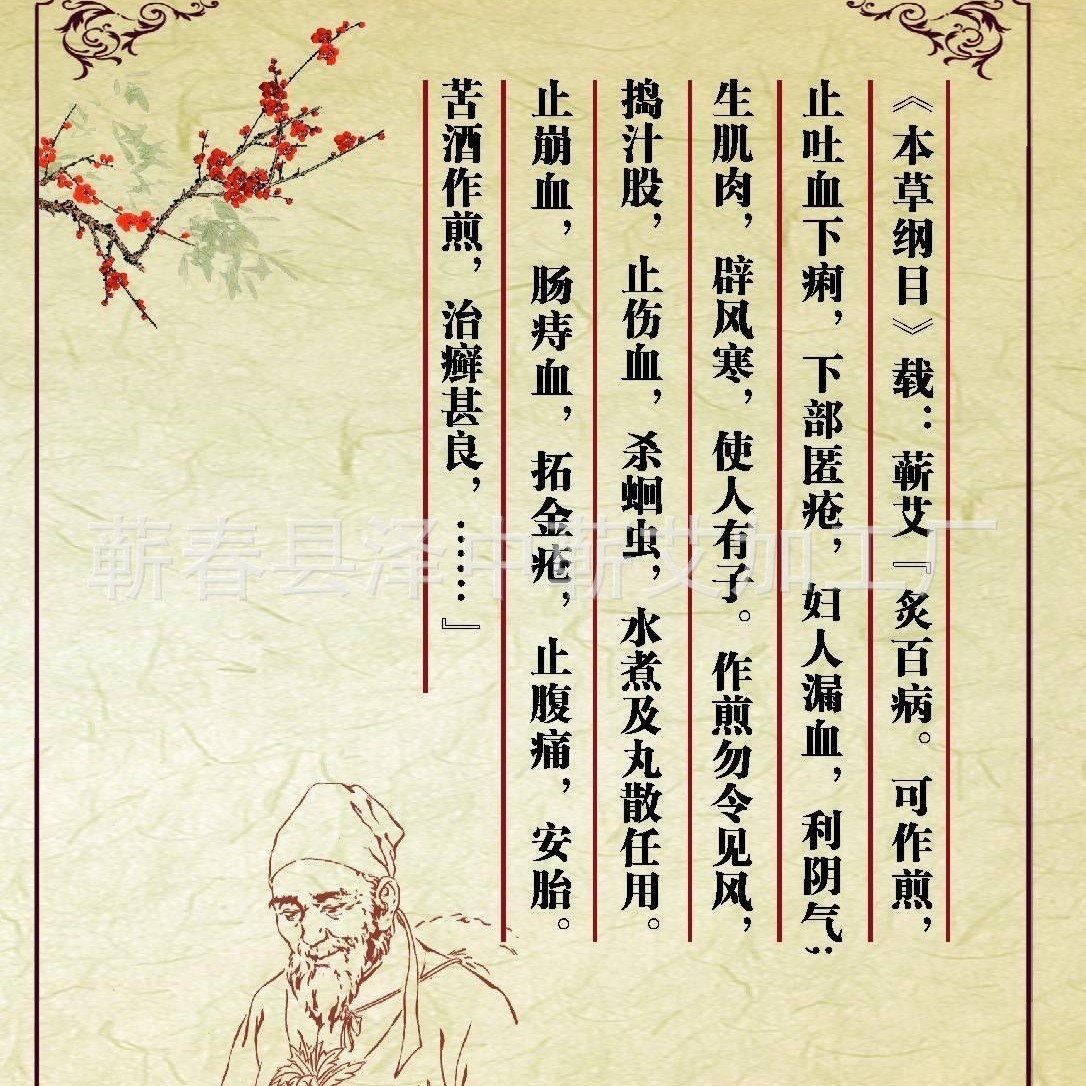 《本草纲目》载：蕲艾『炙百病。可作煎，
止吐血下痢，下部匿疮，妇人漏血，利阴气；
生肌肉，辟风寒，使人有子。作煎勿令见风，
捣汁股，止伤血，杀蛔虫，水煮及丸散任用。
止崩血，肠痔血，拓金疮，止腹痛，安胎。
苦酒作煎，治癣甚良，……』
蕲春县泽中蕲艾加工厂